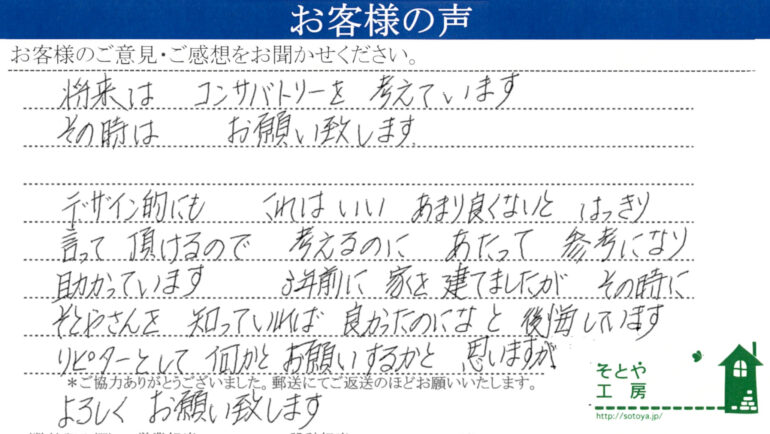 お客様の声
お客様のご意見・ご感想をお聞かせください。
将来は コンサバトリーを 考えています
その時は お願い致します
デザイン的にも これはいい あまり良くないと はっきり
言って 頂けるので 考えるのに あたって 参考になり
助かっています 年前に 家を 建てましたが その時に
そとやさんを 知っていれば 良かったのになと 後悔しています
リピターとして 何かと お願いするかと 思いますが
＊ご協力ありがとうございました。郵送にてご返送のほどお願いいたします。
よろしく お願い致します
そとや
工房
http://sotoya.jp/